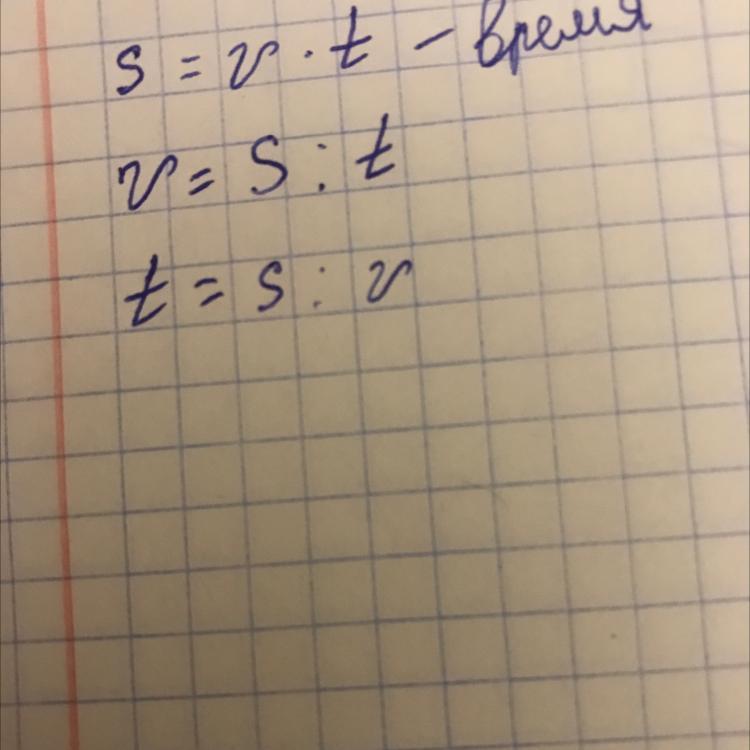 s = v · t – время
v = S : t
t = s : v